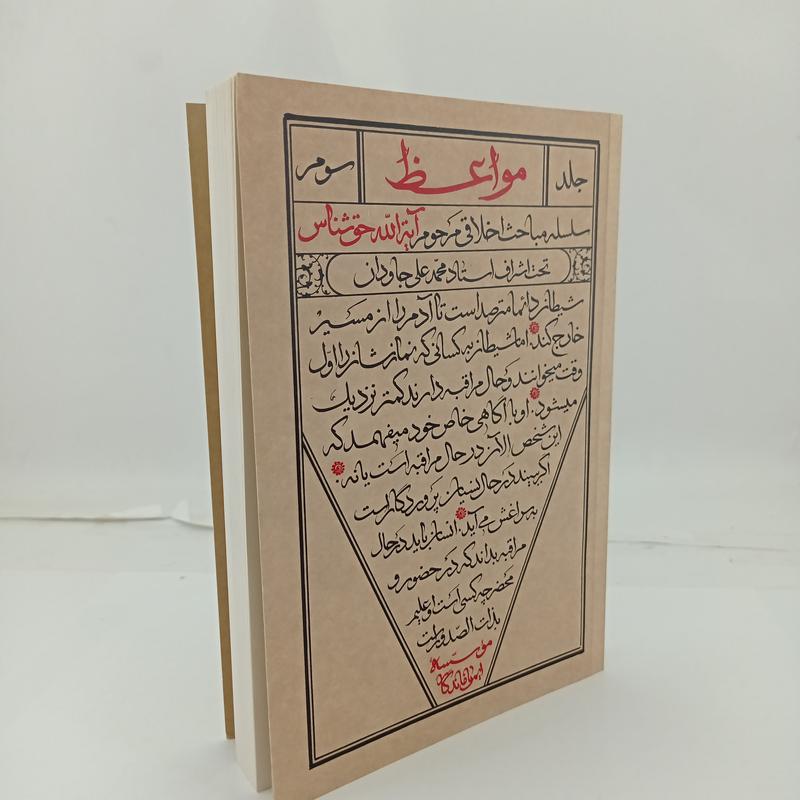 جلد مواعظ سوم
سلسله مباحث اخلاقی مرحوم آیة الله حق شناس
تحت اشراف استاد محمد علی جاودان
شیطان دائما مترصد است تا آدم را از مسیر
خارج کند. اما شیطان به کسانی که نمازشان را اول
وقت میخوانند و حال مراقبه دارند کمتر نزدیک
میشود. او با آگاهی خاص خود میفهمد که
این شخص الآن در حال مراقبه است یا نه.
اگر ببیند در حال نسیان پروردگار است
به سراغش می آید. انسان باید در حال
مراقبه بداند که در حضور و
محضر چه کسی است او علیم
بذات الصدور است
موسسه